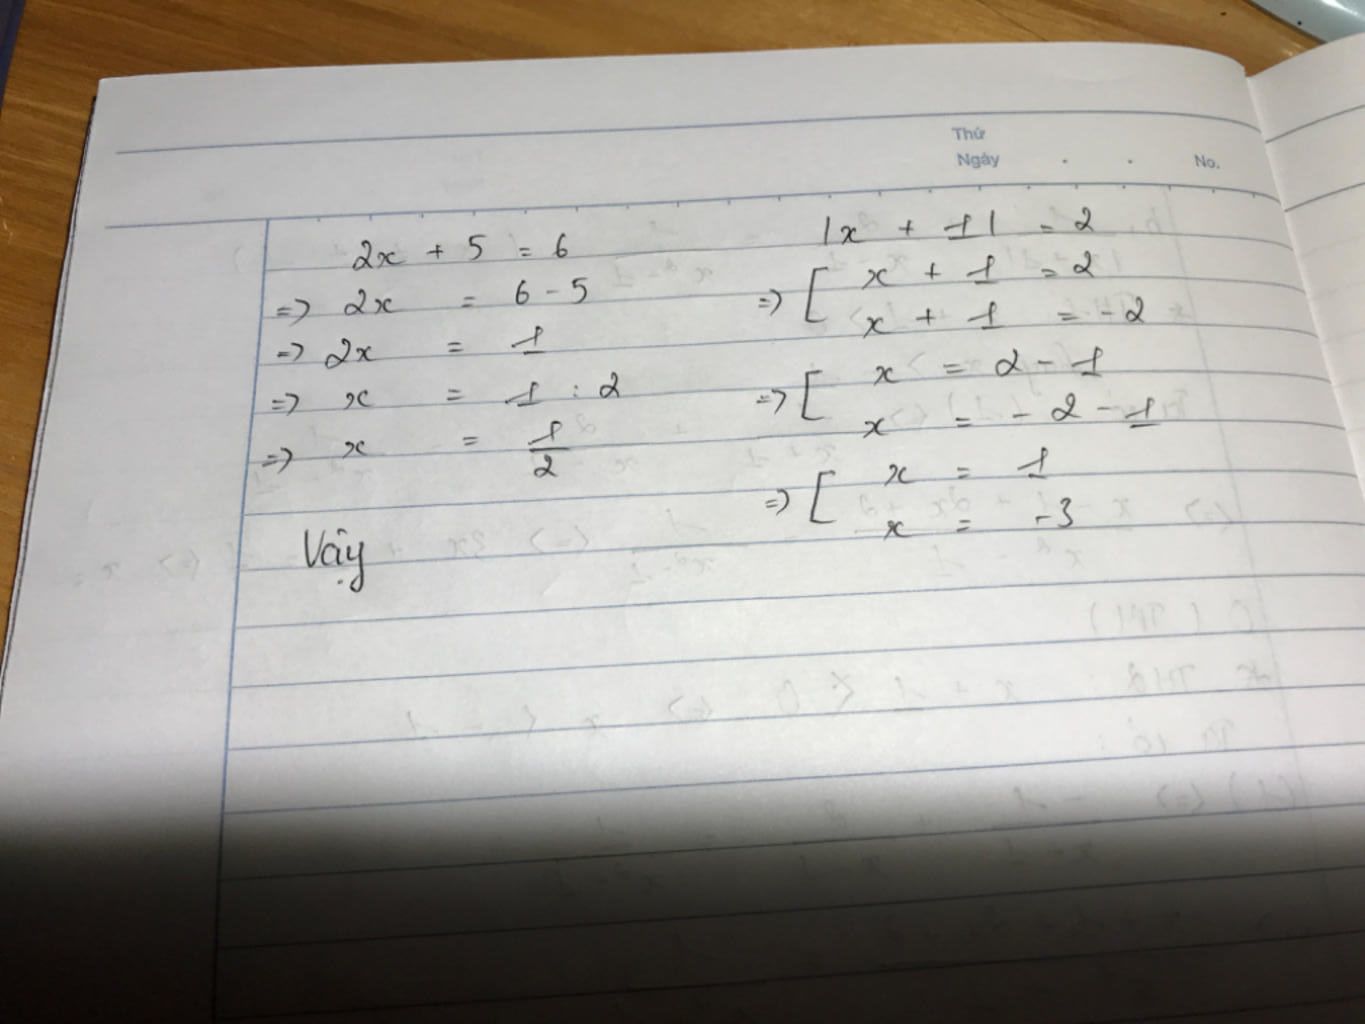 Thứ
Ngày . . No.
2x + 5 = 6
=> 2x = 6 - 5
=> 2x = 1
=> x = 1 : 2
=> x = 1/2
Vậy
|x + 1| = 2
=> [ x + 1 = 2
x + 1 = -2
=> [ x = 2 - 1
x = -2 - 1
=> [ x = 1
x = -3